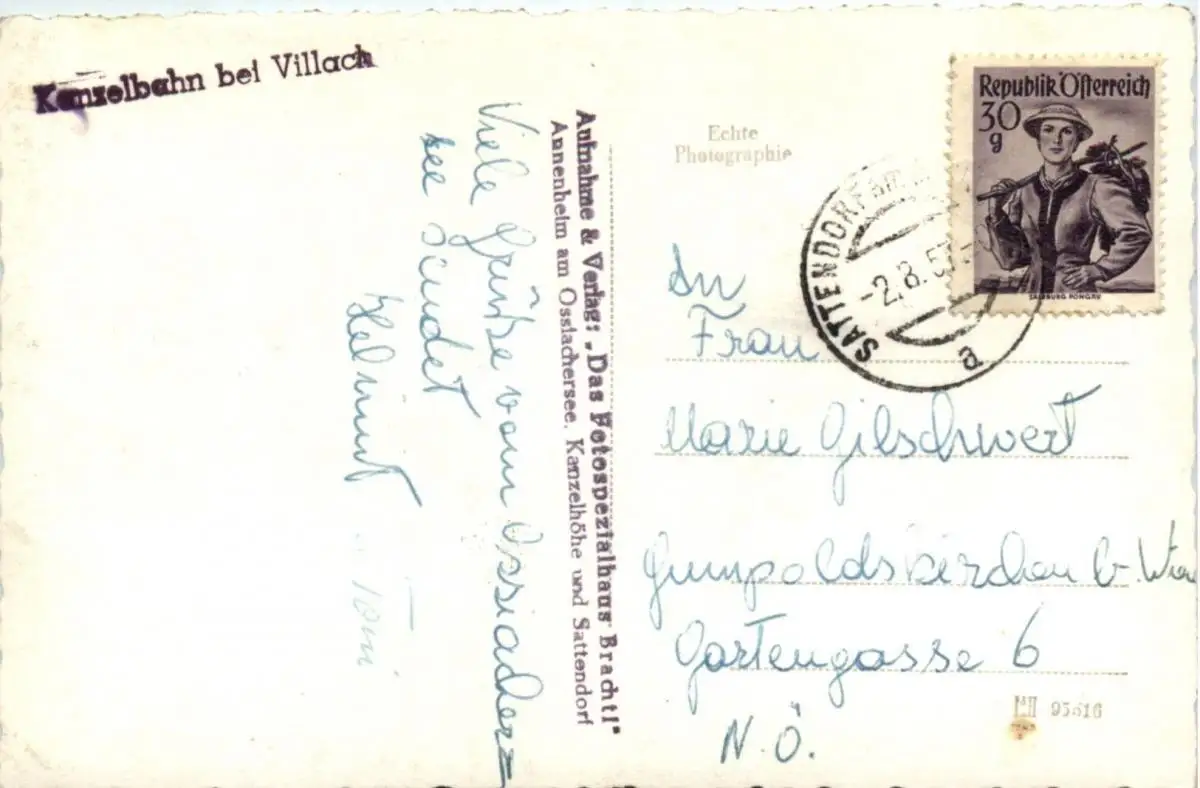 Kanzelbahn bei Villach
Viele Grüße vom Ossiacher=
see sendet
Helmut
Toni
Aufnahme & Verlag: „Das Fotospezialhaus Brachtl"
Annenheim am Ossiachersee, Kanzelhöhe und Sattendorf
Echte
Photographie
Republik Österreich
30
g
SALZBURG PONGAU
SATTENDORF am
-2.8.5
a
An
Frau
Marie Gilschwert
Gumpoldskirchen b. Wien
Gartengasse 6
N.Ö.